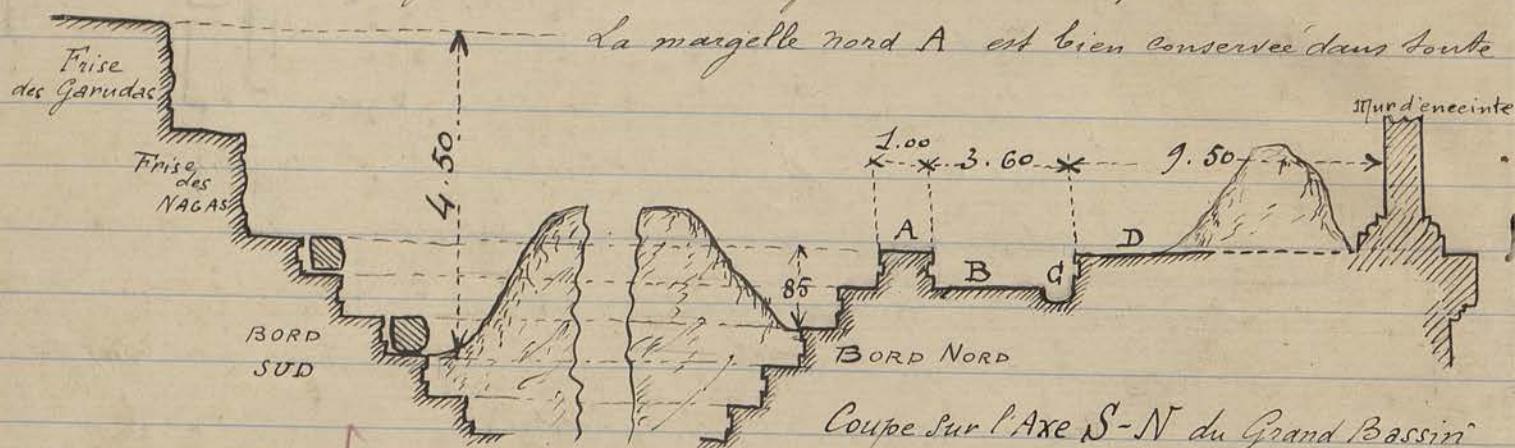 La margelle nord A est bien conservée dans toute
Frise
des Garudas
Frise
des
NAGAS
4.50
Mur d'enceinte
1.00
3.60
9.50
A
B
C
D
85
BORD
SUD
BORD NORD
Coupe sur l'Axe S-N du Grand Bassin